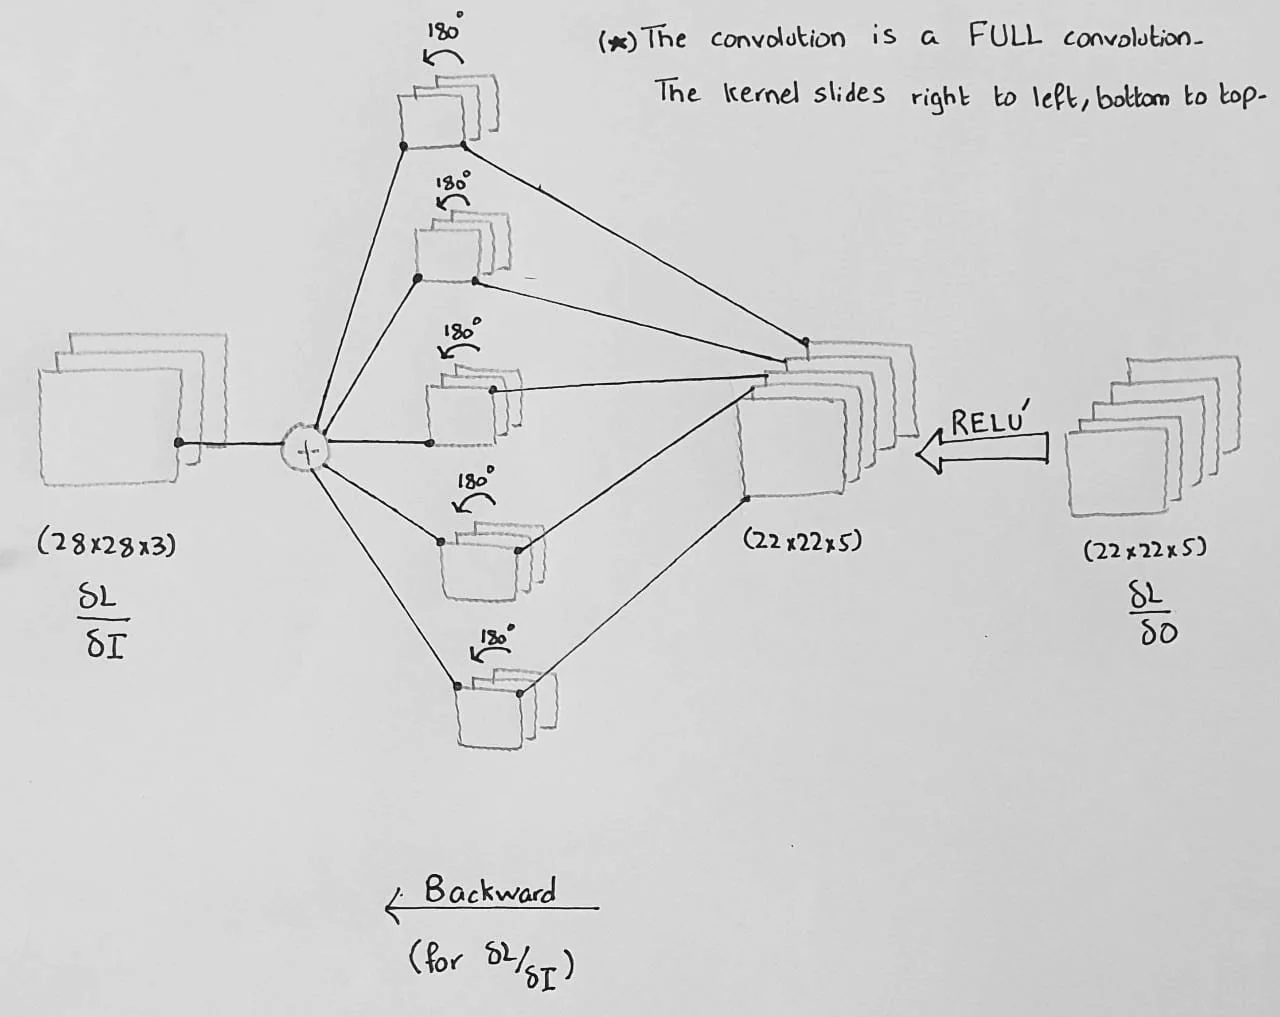 (*) The convolution is a FULL convolution-
The kernel slides right to left, bottom to top-
180°
180°
180°
180°
180°
+
RELU'
(28x28x3)
δL
δI
(22x22x5)
(22x22x5)
δL
δO
Backward
(for δL/δI)